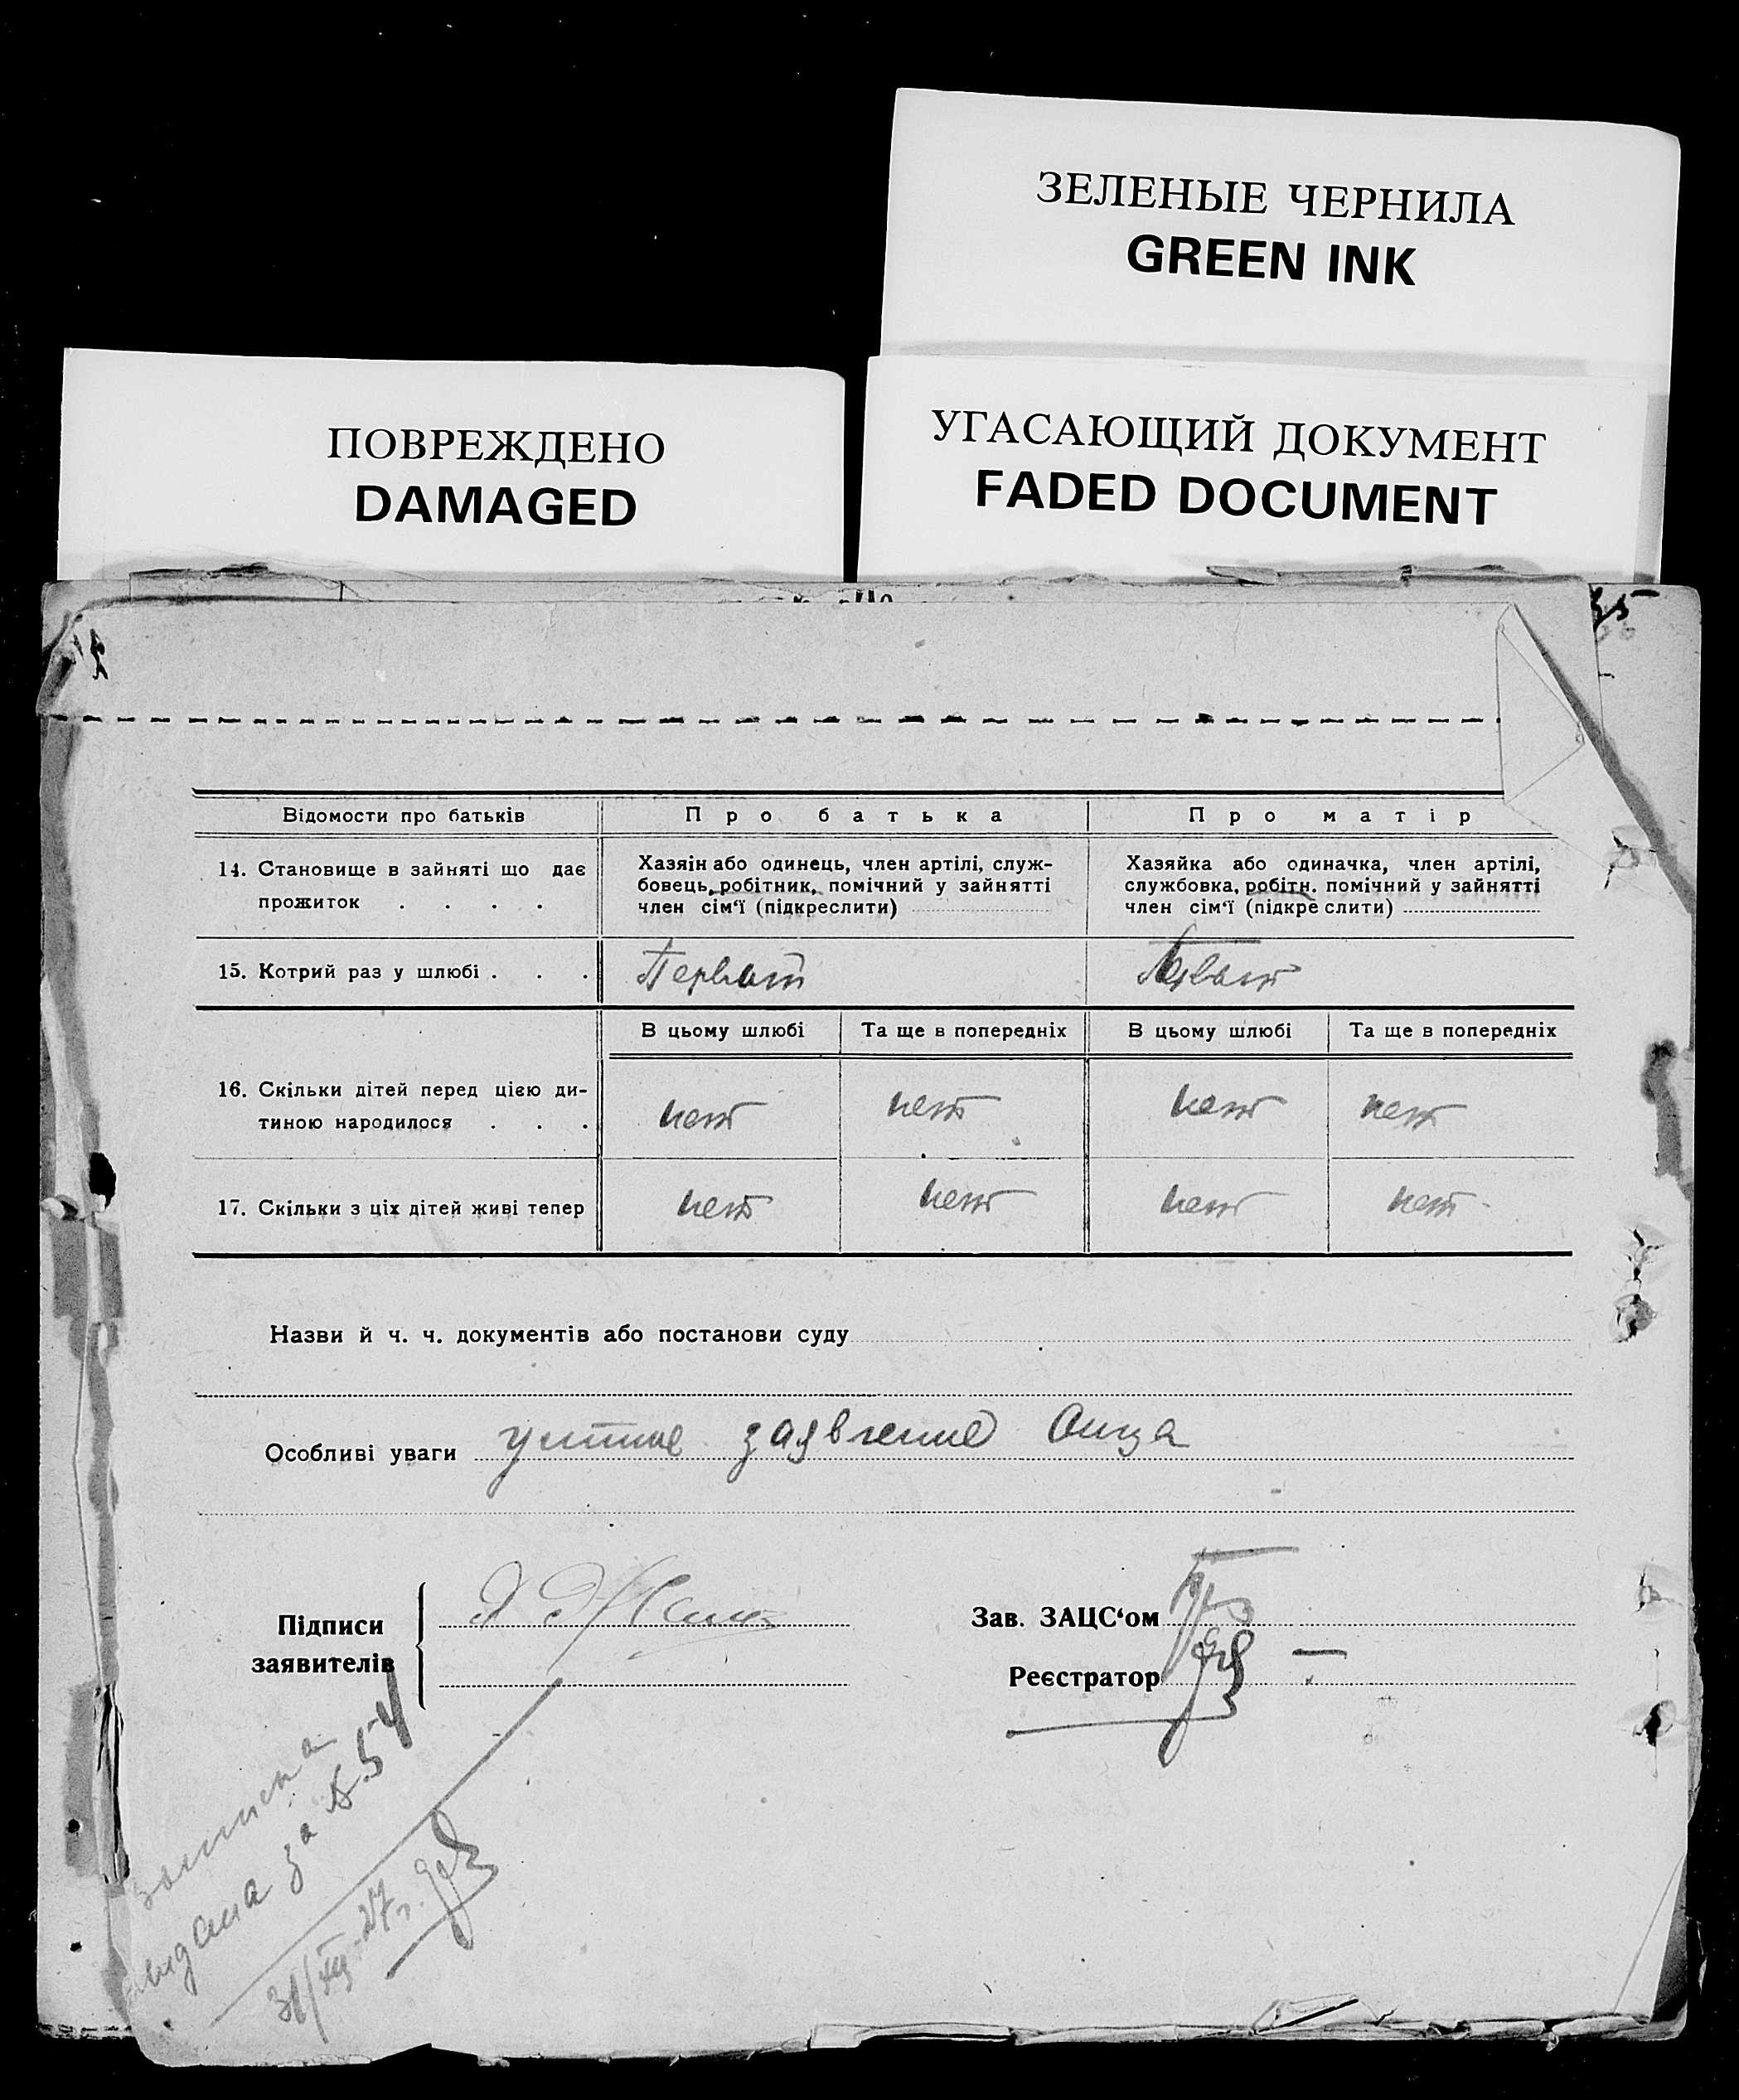 ЗЕЛЕНЫЕ ЧЕРНИЛА
GREEN INK
ПОВРЕЖДЕНО
DAMAGED
УГАСАЮЩИЙ ДОКУМЕНТ
FADED DOCUMENT
35
Відомости про батьків
Про батька
Про матір
14. Становище в зайняті що дає
прожиток . . . .
Хазяін або одинець, член артілі, служ-
бовець, робітник, помічний у зайнятті
член сім‘ї (підкреслити)
Хазяйка або одиначка, член артілі,
службовка, робітн. помічний у зайнятті
член сім‘ї (підкреслити)
15. Котрий раз у шлюбі . . .
Первый
Первый
В цьому шлюбі
Та ще в попередніх
В цьому шлюбі
Та ще в попередніх
16. Скільки дітей перед цією ди-
тиною народилося . . .
нет
нет
нет
нет
17. Скільки з ціх дітей живі тепер
нет
нет
нет
нет
Назви й ч. ч. документів або постанови суду
Особливі уваги устное заявление отца
Підписи
заявителів
Зав. ЗАЦС‘ом
Реєстратор
выписка
выдана за № 54
31/XII-27г.